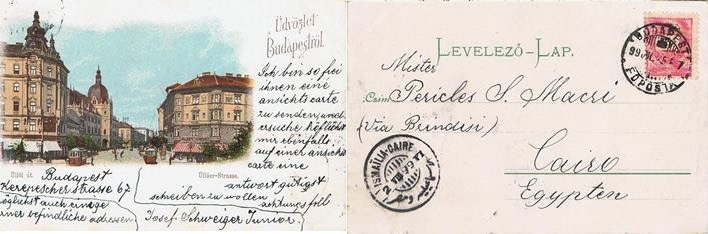 Üdvözlet
Budapestről.
Ich bin so frei
ihnen eine
ansichts carte
zu senden, und
ersuche höflichst
mir ebenfalls
auf einer ansichts
carte eine
antwort gütigst
schreiben zu wollen
achtungsvoll
Josef Schweiger Junior.
Üllői út.
Üllőer-Strasse.
Budapest
Kerepescher strasse 67
möglichst auch einige
befindliche adressen
LEVELEZŐ-LAP.
Mister
Czím
Pericles S. Macri
(Via Brindisi)
Cairo
Egypten
BUDAPEST
FŐPOSTA
ISMAÏLIA-CAIRE